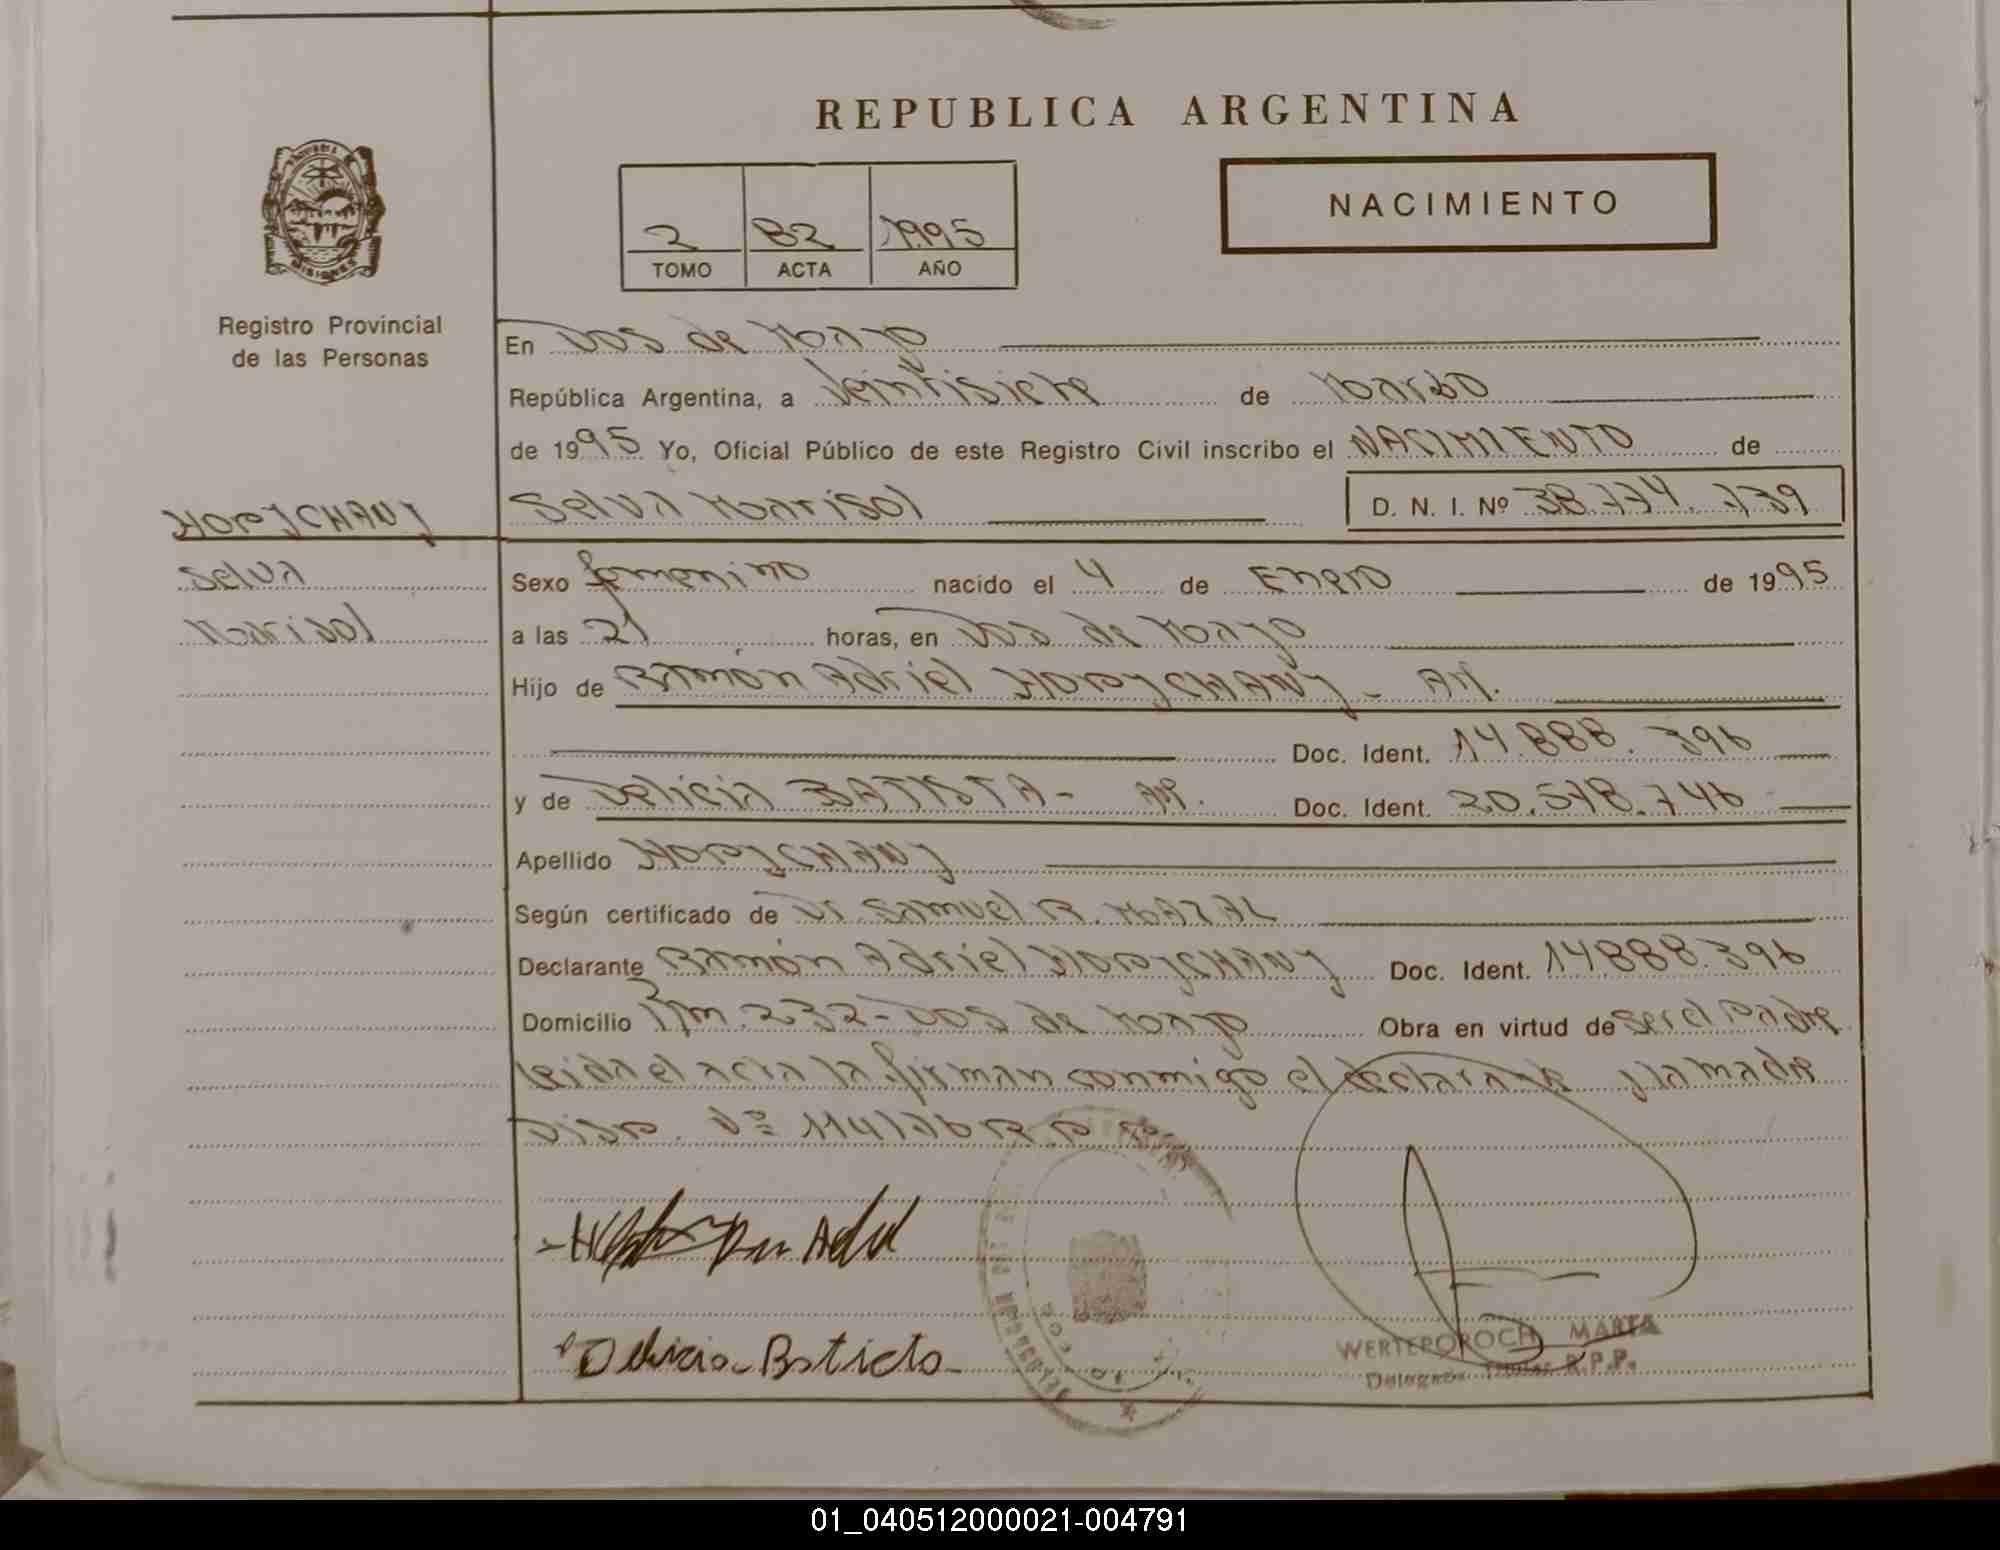 REPUBLICA ARGENTINA
NACIMIENTO
2 82 1995
TOMO ACTA AÑO
MISIONES
Registro Provincial
de las Personas
En Dos de Mayo
República Argentina, a Veintisiete de Marzo
de 1995 Yo, Oficial Público de este Registro Civil inscribo el NACIMIENTO de
Selva Marisol D. N. I. Nº 38.774.739
Selva
Marisol
Sexo femenino nacido el 4 de Enero de 1995
a las 21 horas, en Dos de Mayo
Hijo de Ramón Adriel
Doc. Ident. 14.888.396
y de Delicia BATISTA - Doc. Ident. 20.578.746
Apellido
Según certificado de Dr Samuel R.
Declarante Ramón Adriel Doc. Ident. 14.888.396
Domicilio Km. 232 - Dos de Mayo Obra en virtud de ser el padre
leida el acta la firman conmigo el declarante y la madre
Disp. Nº 114/76 R.P.P.
Delicia Batista
WERTEPOROCH MARTA
Delegada Titular R.P.P.
01_040512000021-004791